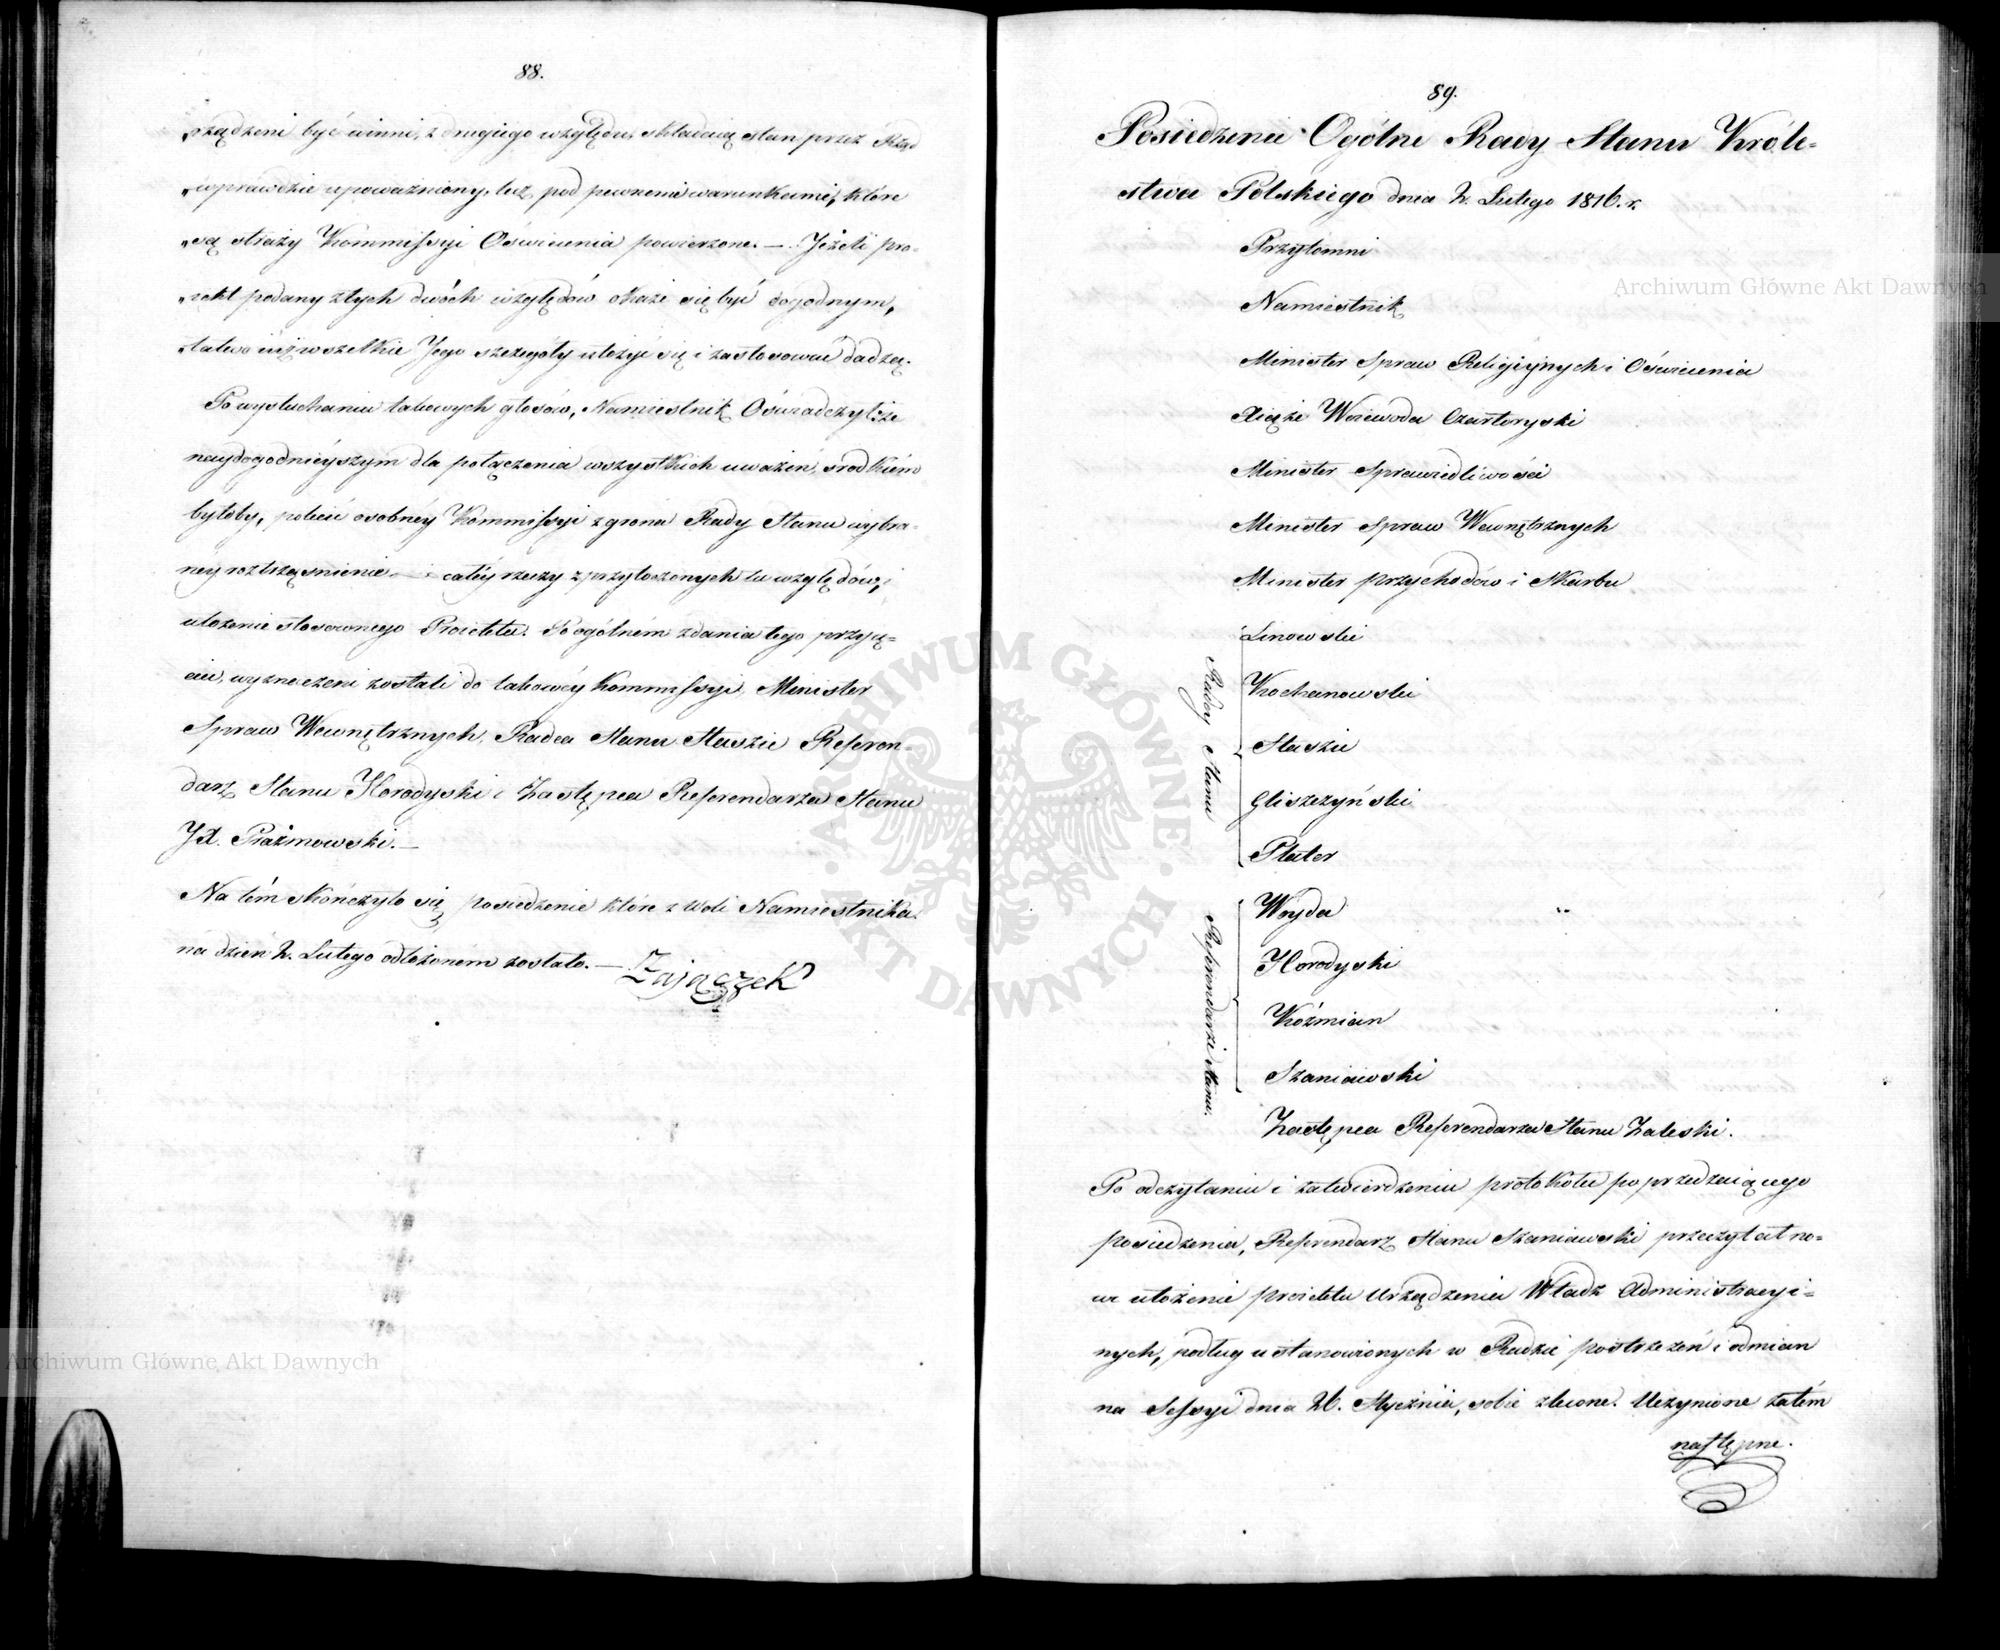 88.
„rządzeni być winni, z drugiego względu, składaią stan przez Rząd
„wprawdzie upoważniony, lecz pod pewnemi warunkami, które
„są straży Kommissyi Oświecenia powierzone. — Jeżeli pro-
„iekt podany z tych dwóch względów okaże się być dogodnym,
„łatwo iuż wszelkie Jego szczegóły ułożyć się i zastosować dadzą.
Po wysłuchaniu takowych głosów, Namiestnik Oświadczył: że
naydogodnieyszym dla połączenia wszystkich uważeń, środkiem
byłoby, polecić osobney Kommissyi z grona Rady Stanu wybra-
ney roztrząśnienie — całey rzeczy z przytoczonych tu względów, i
ułożenie stosownego Proiektu. Po ogólném zdania tego przyię-
ciu, wyznaczeni zostali do takowéy Kommissyi, Minister
Spraw Wewnętrznych, Radca Stanu Staszic Referen-
darz Stanu Horodyski i Zastępca Referendarza Stanu
JX. Prażmowski. —
Na tém skończyło się posiedzenie które z woli Namiestnika
na dzień 2. Lutego odłożoném zostało. — Zajączek
89.
Posiedzenie Ogólne Rady Stanu Króle-
stwa Polskiego dnia 2. Lutego 1816. r.
Przytomni
Namiestnik
Minister Spraw Religiynych i Oświecenia
Xiąże Woiewoda Czartoryski
Minister Sprawiedliwości
Minister Spraw Wewnętrznych
Minister przychodów i Skarbu
Radcy Stanu
Linowski
Kochanowski
Staszic
Gliszczyński
Plater
Referendarze Stanu.
Woyda
Horodyski
Koźmian
Szaniawski
Zastępca Referendarza Stanu Zaleski.
Po odczytaniu i zatwierdzeniu protokołu poprzedzaiącego
posiedzenia, Referendarz Stanu Szaniawski przeczytał no-
we ułożenie proiektu Urządzenia Władz Administracyi-
nych, podług ustanowionych w Radzie postrzeżeń i odmian
na Sessyi dnia 26. Stycznia, sobie zlecone. Uczynione zatém
następne.
Archiwum Główne Akt Dawnych
Archiwum Główne Akt Dawnych
ARCHIWUM GŁÓWNE AKT DAWNYCH